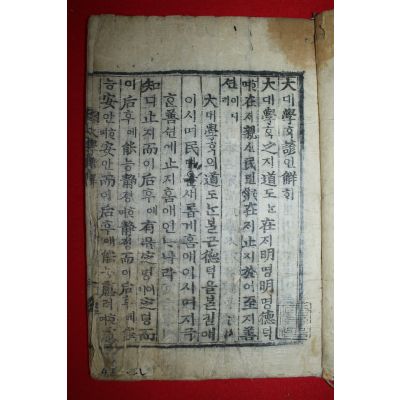 大대學ᄒᆞᆨ諺언解ᄒᆡ
大대學ᄒᆞᆨ之지道도ᄂᆞᆫ在ᄌᆡ明명明명德덕
ᄒᆞ며在ᄌᆡ親신民민ᄒᆞ며在ᄌᆡ止지於어至지善
션이니라
大대學ᄒᆞᆨ의道도ᄂᆞᆫ볼근德덕을볼킴애
이시며民민을새롭게홈애이시며지극
ᄒᆞᆫ善션에止지홈애인ᄂᆞ니라
知디止지而이后후에有유定뎡이니定뎡而
이后후에能능靜졍ᄒᆞ며靜졍而이后후에能
능安안ᄒᆞ며安안而이后후에能능慮려ᄒᆞ며
大學諺解